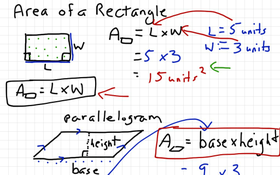 Area of a Rectangle
A▭ = L x W
L = 5 units
W = 3 units
= 5 x 3
= 15 units²
W
L
A▭ = L x W
parallelogram
height
base
A▱ = base x height
= 9 x